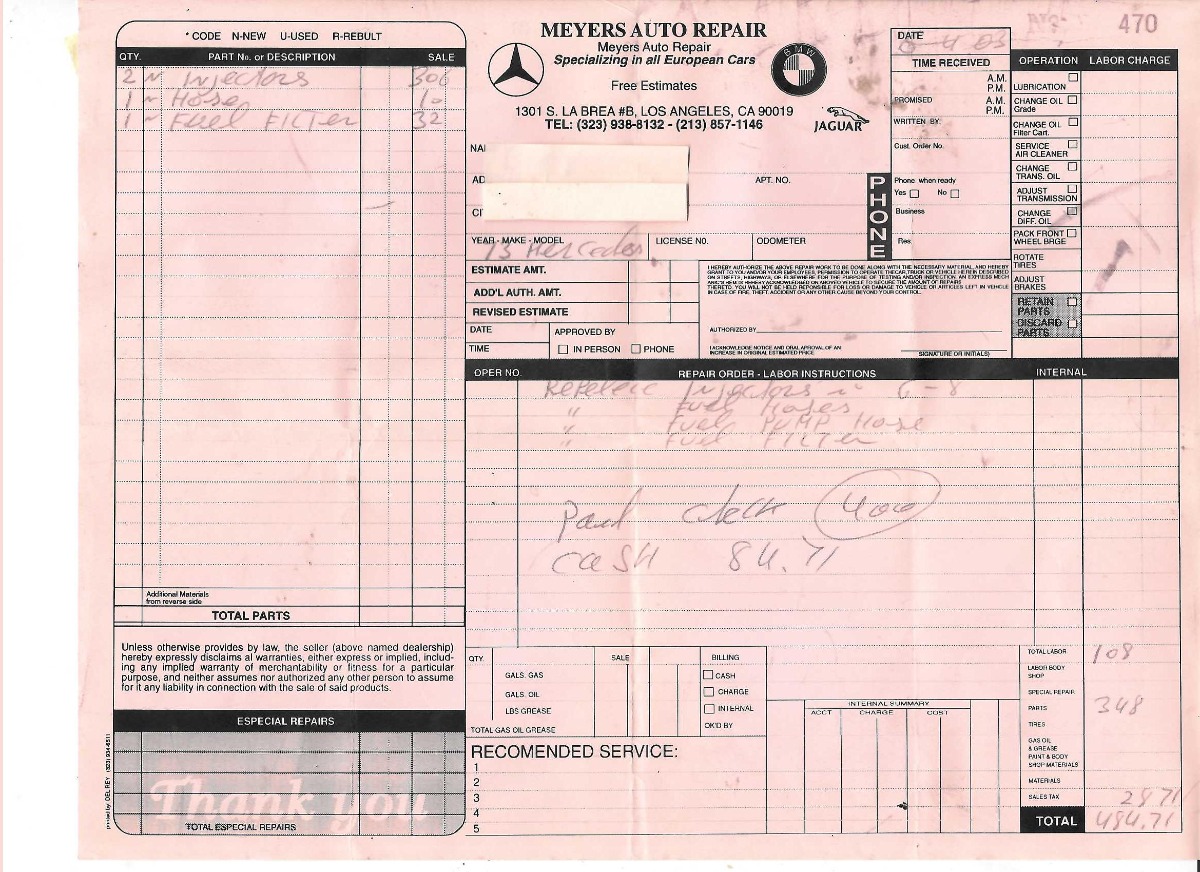 470
* CODE N-NEW U-USED R-REBULT
QTY. PART No. or DESCRIPTION SALE
2 N Injectors 306
1 ~ Hose 10
1 ~ Fuel FILTER 32
Additional Materials
from reverse side
TOTAL PARTS
Unless otherwise provides by law, the seller (above named dealership)
hereby expressly disclaims al warranties, either express or implied, includ-
ing any implied warranty of merchantability or fitness for a particular
purpose, and neither assumes nor authorized any other person to assume
for it any liability in connection with the sale of said products.
ESPECIAL REPAIRS
Thank you
TOTAL ESPECIAL REPAIRS
printed by DEL REY (323) 934-6511
MEYERS AUTO REPAIR
Meyers Auto Repair
Specializing in all European Cars
Free Estimates
BMW
1301 S. LA BREA #B, LOS ANGELES, CA 90019
TEL: (323) 938-8132 - (213) 857-1146
JAGUAR
APT. NO.
YEAR - MAKE - MODEL LICENSE NO. ODOMETER
73 Mercedes
ESTIMATE AMT.
ADD'L AUTH. AMT.
REVISED ESTIMATE
DATE APPROVED BY
TIME IN PERSON PHONE
DATE
4 03
TIME RECEIVED
A.M.
P.M.
PROMISED A.M.
P.M.
WRITTEN BY:
Cust. Order No.
PHONE
Phone when ready
Yes No
Business
Res.
I HEREBY AUTHORIZE THE ABOVE REPAIR WORK TO BE DONE ALONG WITH THE NECESSARY MATERIAL, AND HEREBY
GRANT TO YOU AND/OR YOUR EMPLOYEES, PERMISSION TO OPERATE THE CAR, TRUCK OR VEHICLE HEREIN DESCRIBED
ON STREETS, HIGHWAYS, OR ELSEWHERE FOR THE PURPOSE OF TESTING AND/OR INSPECTION. AN EXPRESS MECH
ANIC'S LIEN IS HEREBY ACKNOWLEDGED ON ABOVED VEHICLE TO SECURE THE AMOUNT OF REPAIRS
THERETO. YOU WILL NOT BE HELD REPONSIBLE FOR LOSS OR DAMAGE TO VEHICLE OR ARTICLES LEFT IN VEHICLE
IN CASE OF FIRE, THEFT, ACCIDENT OR ANY OTHER CAUSE BEYOND YOUR CONTROL.
AUTHORIZED BY
I ACKNOWLEDGE NOTICE AND ORAL APROVAL OF AN
INCREASE IN ORIGINAL ESTIMATED PRICE
SIGNATURE OR INITIALS)
OPERATION LABOR CHARGE
LUBRICATION
CHANGE OIL
Grade
CHANGE OIL
Filter Cart.
SERVICE
AIR CLEANER
CHANGE
TRANS. OIL
ADJUST
TRANSMISSION
CHANGE
DIFF. OIL
PACK FRONT
WHEEL BRGE
ROTATE
TIRES
ADJUST
BRAKES
RETAIN
PARTS
DISCARD
PARTS
OPER NO. REPAIR ORDER - LABOR INSTRUCTIONS INTERNAL
Injectors 6-8
" Fuel Hoses
" Fuel PUMP Hose
" Fuel FILTER
Paid check 400
CASH 84.71
QTY. SALE BILLING
GALS. GAS CASH
GALS. OIL CHARGE
LBS GREASE INTERNAL
TOTAL GAS OIL GREASE OK'D BY
INTERNAL SUMMARY
ACCT CHARGE COST
RECOMENDED SERVICE:
1
2
3
4
5
TOTAL LABOR 108
LABOR BODY
SHOP
SPECIAL REPAIR
PARTS 348
TIRES
GAS OIL
& GREASE
PAINT & BODY
SHOP MATERIALS
MATERIALS
SALES TAX 28 71
TOTAL 484.71